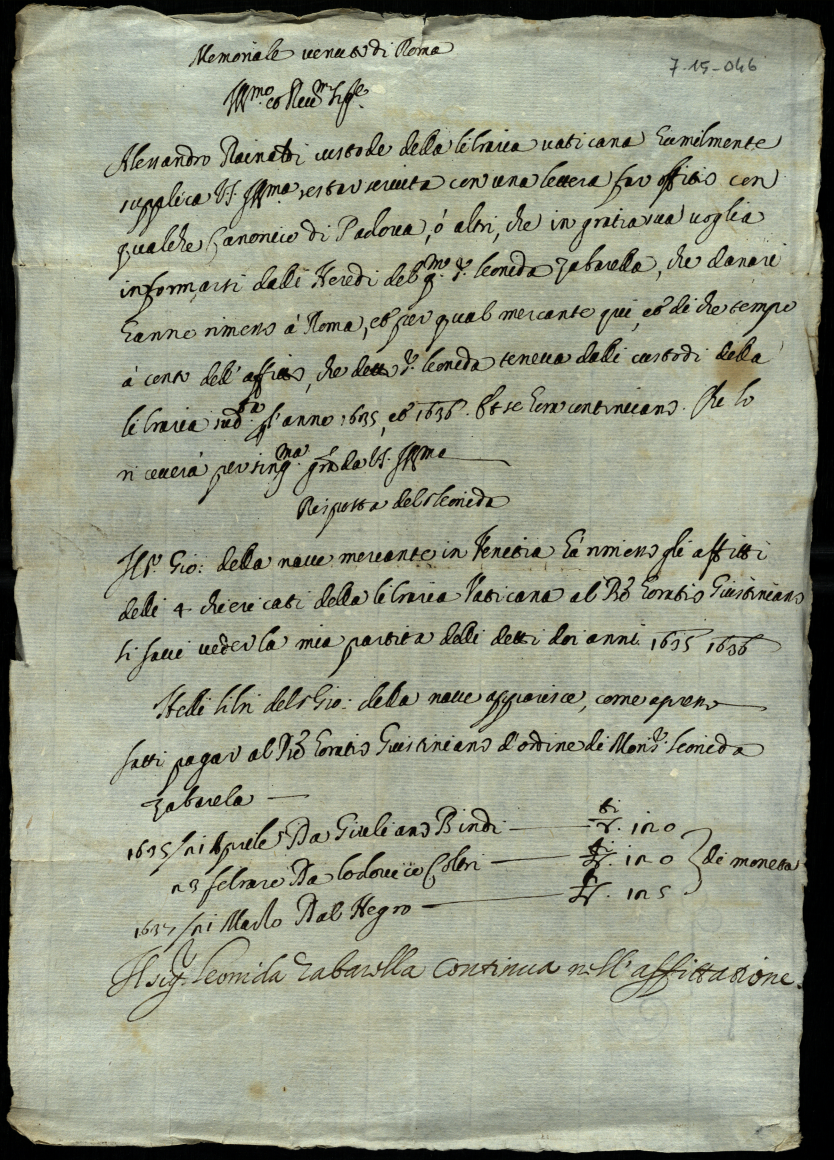 7-15-046
Memoriale venuto di Roma
Ill.mo et Reu.mo Sig.re
Alessandro Rainaldi custode della libraria vaticana humilmente
supplica V.S. Ill.ma restar seruita con una lettera far offitio con
qualche Canonico di Padoua, ò altri, che in gratia sua uoglia
informarsi dalli Heredi del q.m S.r Leonida Zabarella, che danari
hanno rimesso à Roma, et per qual mercante qui, et di che tempo
à conto dell' affitto, che detto S.r Leonida teneua dalli custodi della
libraria sud.ta l'anno 1635, et 1636. Et se hora continuano. Che lo
riceuerà per sing.ma gr.a da V.S. Ill.ma
Risposta del S. Leonida
Il S.r Gio: della naue mercante in Venetia hà rimesso gli affitti
delli 4 chiericati della libraria Vaticana al Horatio Giustiniano
si facci ueder la mia partita delli detti doi anni 1635 1636
Nelli libri del S. Gio: della naue apparisce, come apresso
fatti pagar al Horatio Giustiniano d'ordine di Mons.r Leonida
Zabarela
1635 Aprile Da Giuliano Bindi 120
3 febraro Da Lodouico 120 di moneta
1637 Marzo Dal Negro 125
Il sig.r Leonida Zabarella continua nell' affittatione.